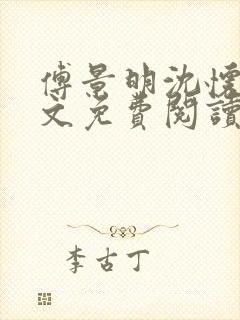 傅景明沈懷
文免費閱讀
李古丁